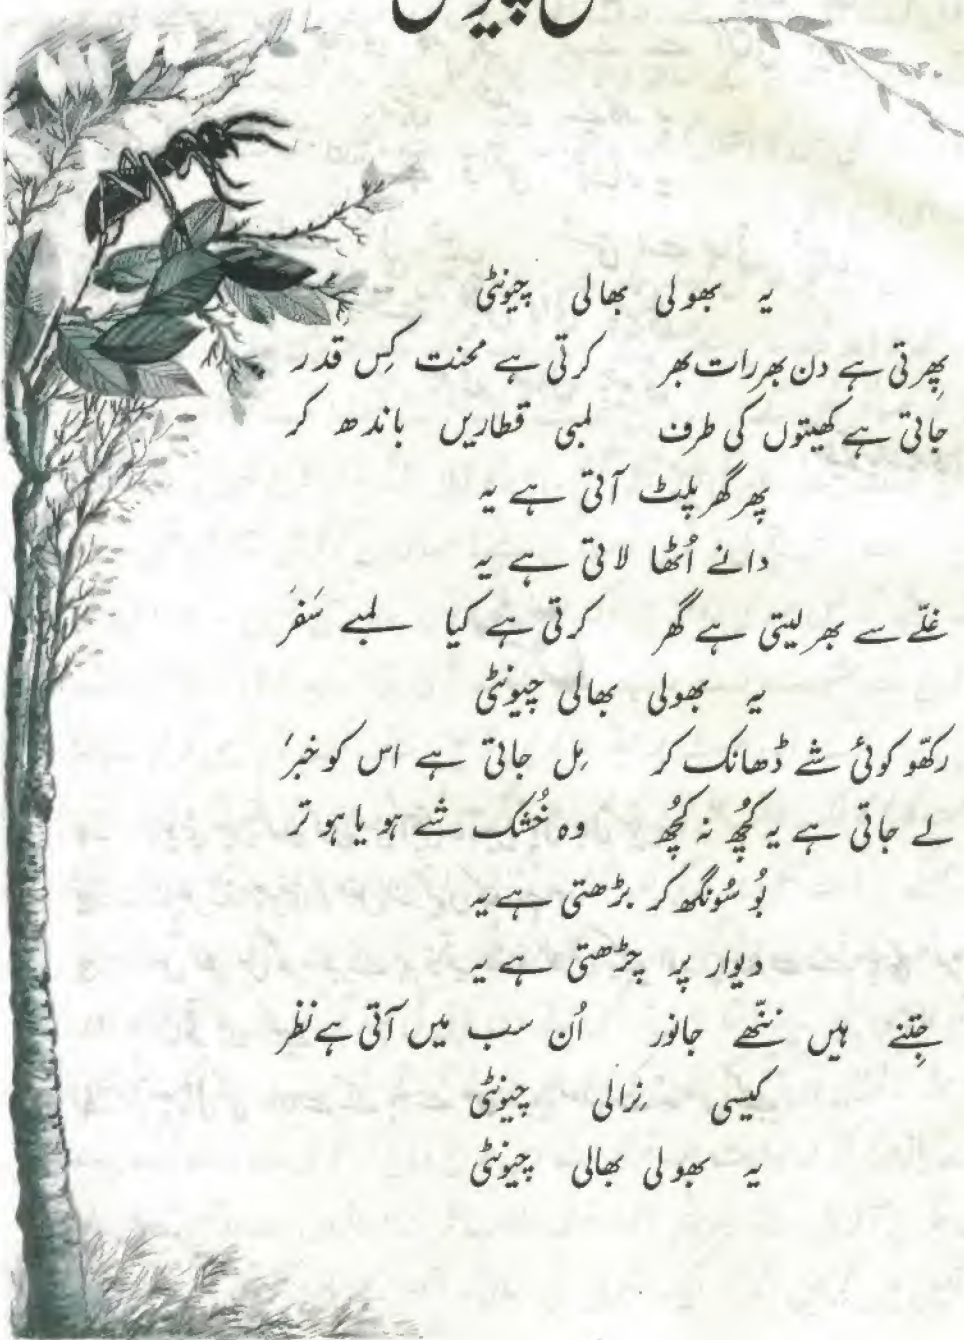 یہ بھولی بھالی چیونٹی
پھِرتی ہے دن بھر رات بھر کرتی ہے محنت کِس قدر
جاتی ہے کھیتوں کی طرف لمبی قطاریں باندھ کر
پھر گھر پلٹ آتی ہے یہ
دانے اُٹھا لاتی ہے یہ
غلّے سے بھر لیتی ہے گھر کرتی ہے کیا لمبے سَفَر
یہ بھولی بھالی چیونٹی
رکھّو کوئی شے ڈھانک کر مِل جاتی ہے اس کو خبر
لے جاتی ہے یہ کُچھ نہ کُچھ وہ خُشک شے ہو یا ہو تر
بُو سُونگھ کر بڑھتی ہے یہ
دیوار پر چڑھتی ہے یہ
جِتنے ہیں ننّھے جانور اُن سب میں آتی ہے نظر
کیسی نِرالی چیونٹی
یہ بھولی بھالی چیونٹی